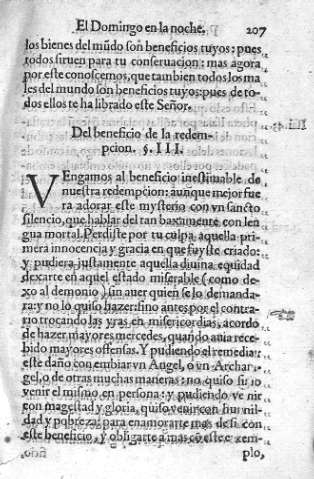 El Domingo en la noche. 207
los bienes del mũdo son beneficios tuyos: pues
todos siruen para tu conseruacion: mas agora
por este conoscemos, que tambien todos los ma
les del mundo son beneficios tuyos: pues de to-
dos ellos te ha librado este Señor.
Del beneficio de la redem-
pcion. §. III.
VEngamos al beneficio inestimable de
nuestra redempcion: aunque mejor fue
ra adorar este mysterio con vn sancto
silencio, que hablar del tan baxamente con len
gua mortal. Perdiste por tu culpa aquella pri-
mera innocencia y gracia en que fuyste criado:
y pudiera justamente aquella diuina equidad
dexarte en aquel estado miserable (como de
xo al demonio) sin auer quien se lo demanda-
ra: y no lo quiso hazer: sino antes por el contra-
rio trocando las yras en misericordias, acordo
de hazer mayores mercedes, quando auia rece-
bido mayores offensas. Y pudiendo remediar
este daño con embiar vn Angel, o vn Archan-
gel, o de otras muchas maneras: no quiso sino
venir el mismo en persona: y pudiendo venir
con magestad y gloria, quiso venir con humil-
dad y pobreza: para enamorarte mas de si con
este beneficio, y obligarte a mas cõ este exem-
plo,